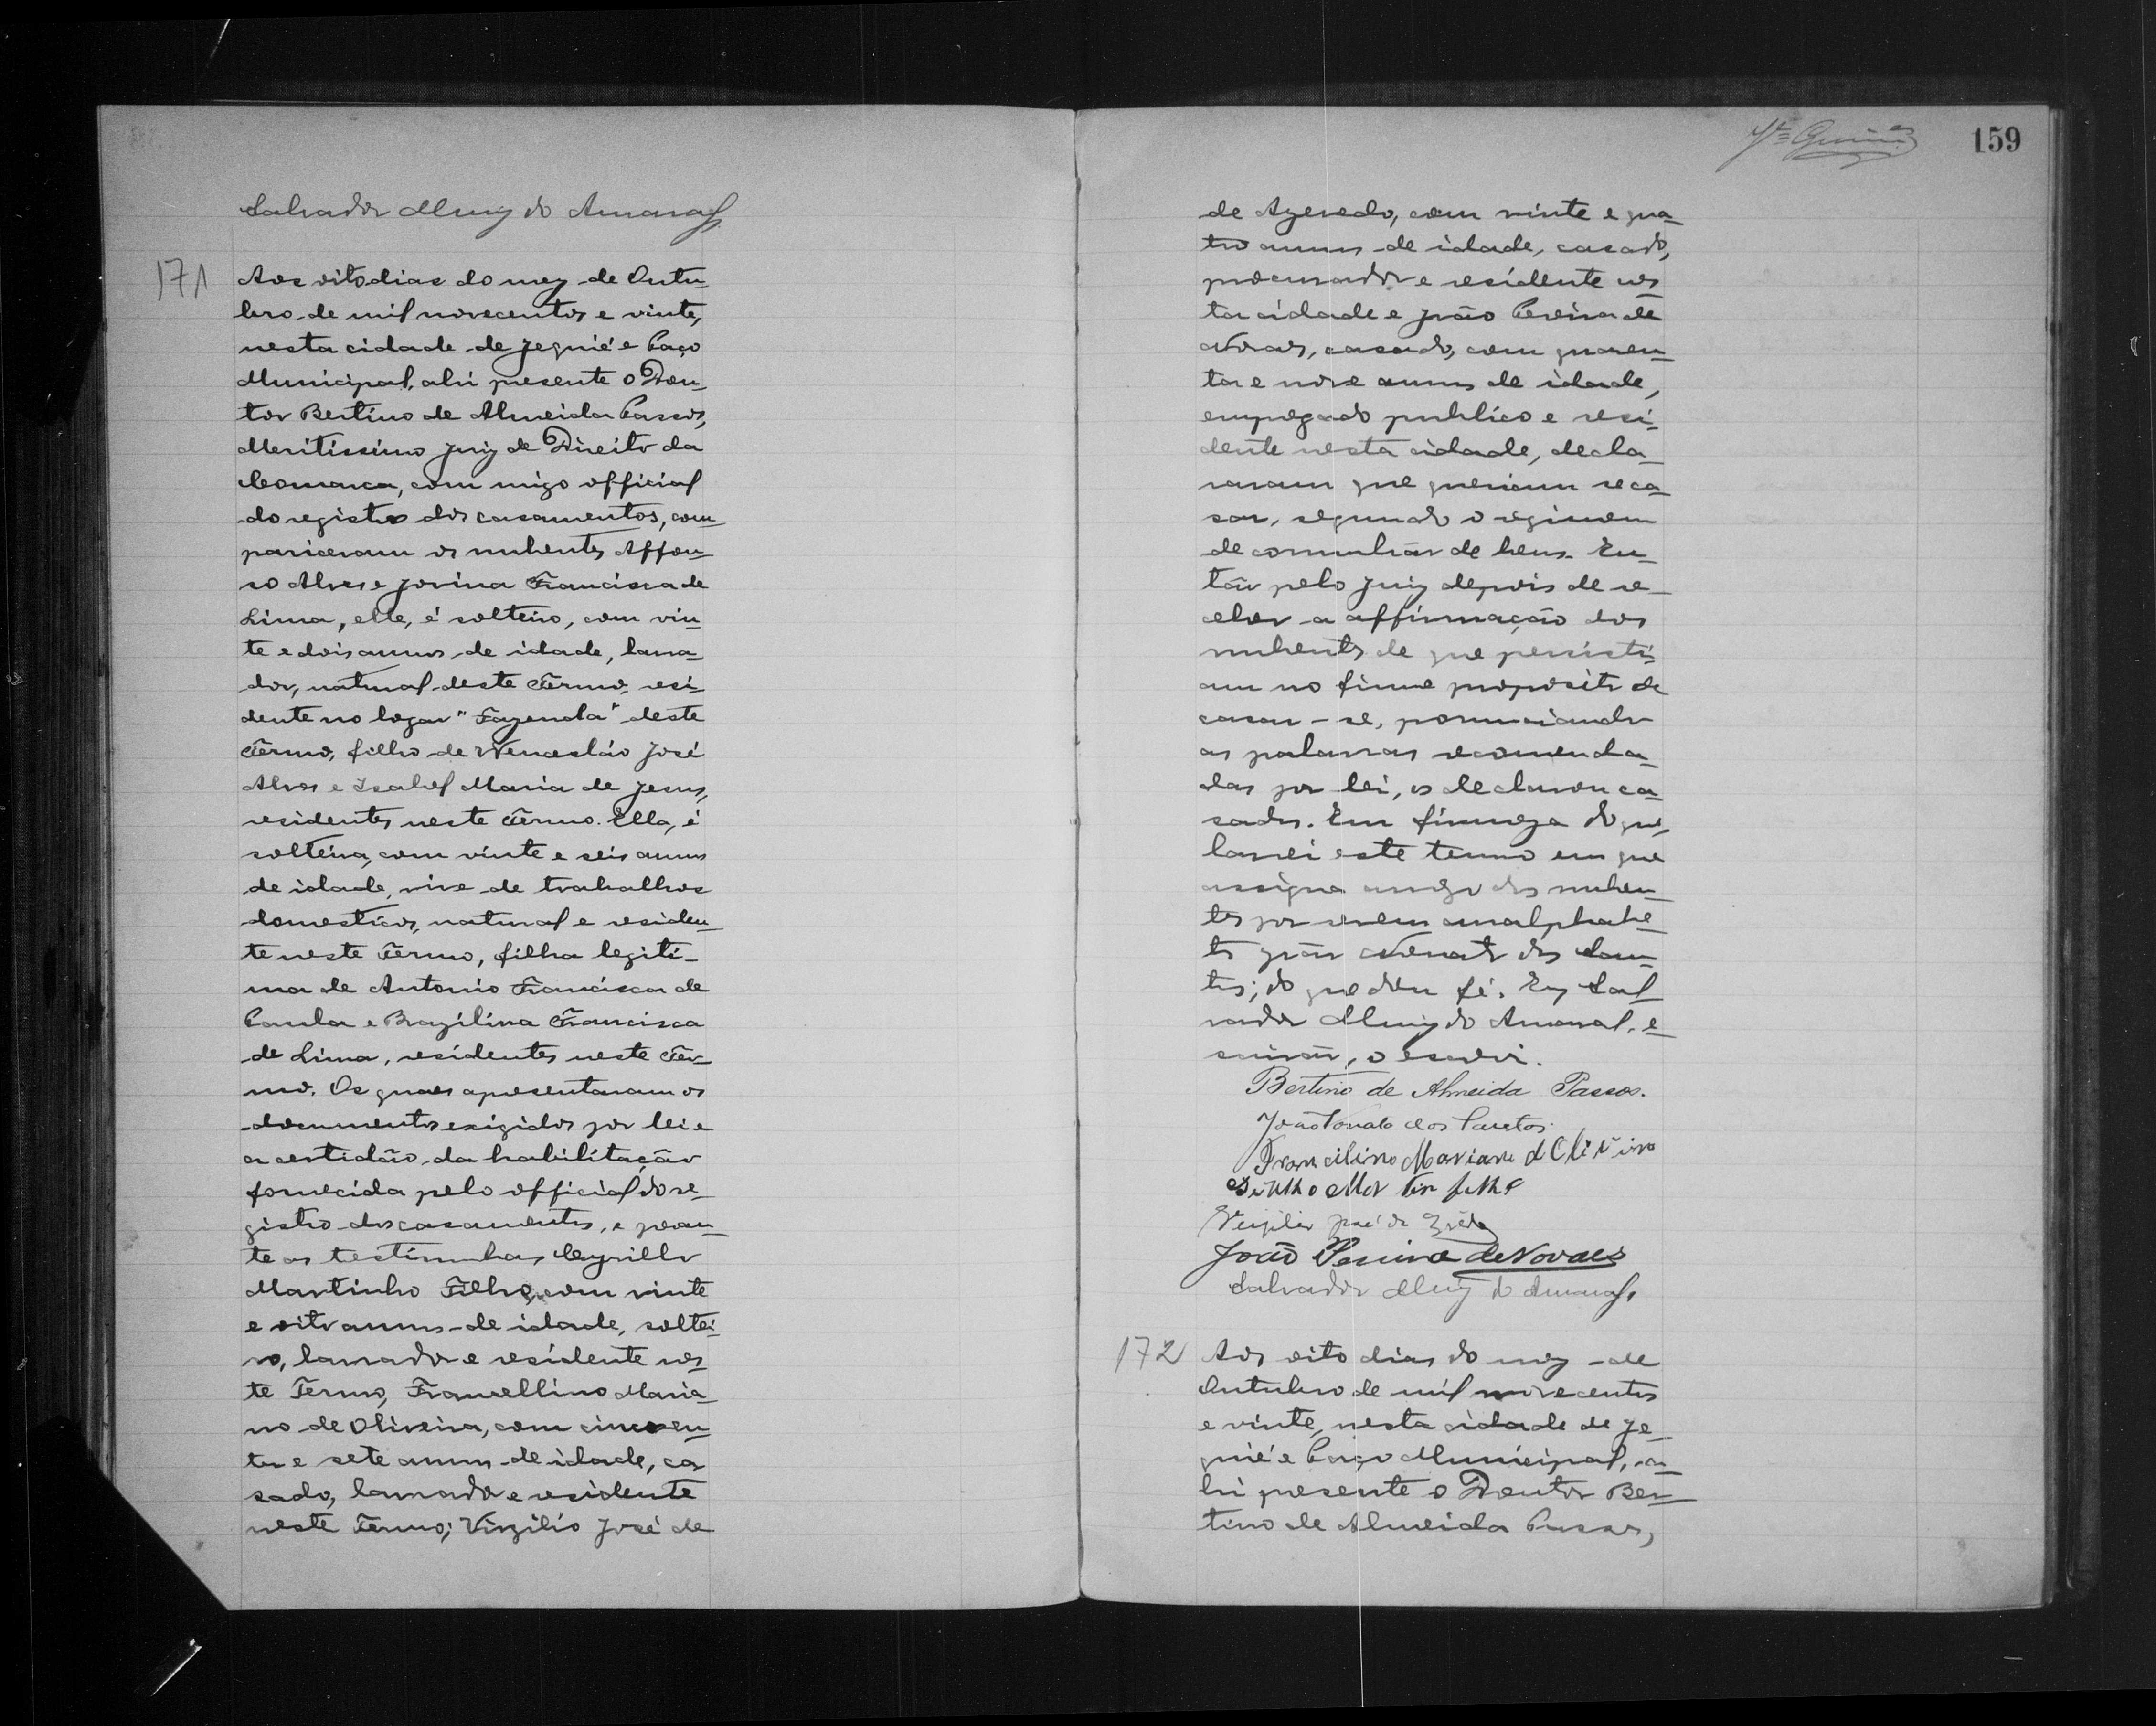 Salvador Muniz do Amaral
171
Aos oito dias do mez de Outu-
bro de mil novecentos e vinte,
nesta cidade de Jequié e Paço
Municipal, ahi presente o Dou-
tor Bertino de Almeida Passos,
Meritissimo Juiz de Direito da
Comarca, com migo official
do registro dos casamentos, com-
pariceram os nubentes Affon-
so Alves e Jovina Francisca de
Lima, elle, é solteiro, com vin-
te e dois annos de idade, lavra-
dor, natural deste Termo, resi-
dente no logar "Fazenda" deste
Termo, filho de Wencesláo José
Alves e Isabel Maria de Jesus,
residentes neste Termo. Ella, é
solteira, com vinte e seis annos
de idade, vive de trabalhos
domesticos, natural e residen-
te neste Termo, filha legiti-
ma de Antonio Francisco de
Paula e Brazilina Francisca
de Lima, residentes neste Ter-
mo. Os quaes apresentaram os
documentos exigidos por lei e
a certidão da habilitação
fornecida pelo official do re-
gistro dos casamentos, e peran-
te as testimunhas Cyrillo
Martinho Filho, com vinte
e oito annos de idade, soltei-
ro, lavrador e residente nes-
te Termo, Francellino Maria-
no de Oliveira, com cincoen-
ta e sete annos de idade, ca
sado, lavrador e residente
neste Termo; Virgilio José de
159
de Azevedo, com vinte e qua-
tro annos de idade, casado,
procurador e residente nes-
ta cidade e João Pereira de
Novaes, casado, com quaren-
ta e nove annos de idade,
empregado publico e resi-
dente nesta cidade, decla-
raram que queriam se ca-
sar, segundo o regimem
de comunhão de bens. En-
tão pelo Juiz depois de re-
ceber a affirmação dos
nubentes de que persisti-
am no firme proposito de
casar-se, pronunciando
as palavras recomenda-
das por lei, os declarou ca-
sados. Em firmeza do que,
lavrei este termo em que
assigna a rogo dos nuben-
tes por serem analphabe-
tos João Donato dos San-
tos; do que dou fé. Eu Sal-
vador Muniz do Amaral, e-
scrivão, o escrevi.
Bertino de Almeida Passos.
João Donato dos Santos.
Francilino Mariano d Oliveira
Virgilio José de
João Pereira de Novaes
Salvador Muniz do Amaral.
172
Aos oito dias do mez de
Outubro de mil novecentos
e vinte, nesta cidade de Je-
quié e Paço Municipal, a-
hi presente o Doutor Ber-
tino de Almeida Passos,